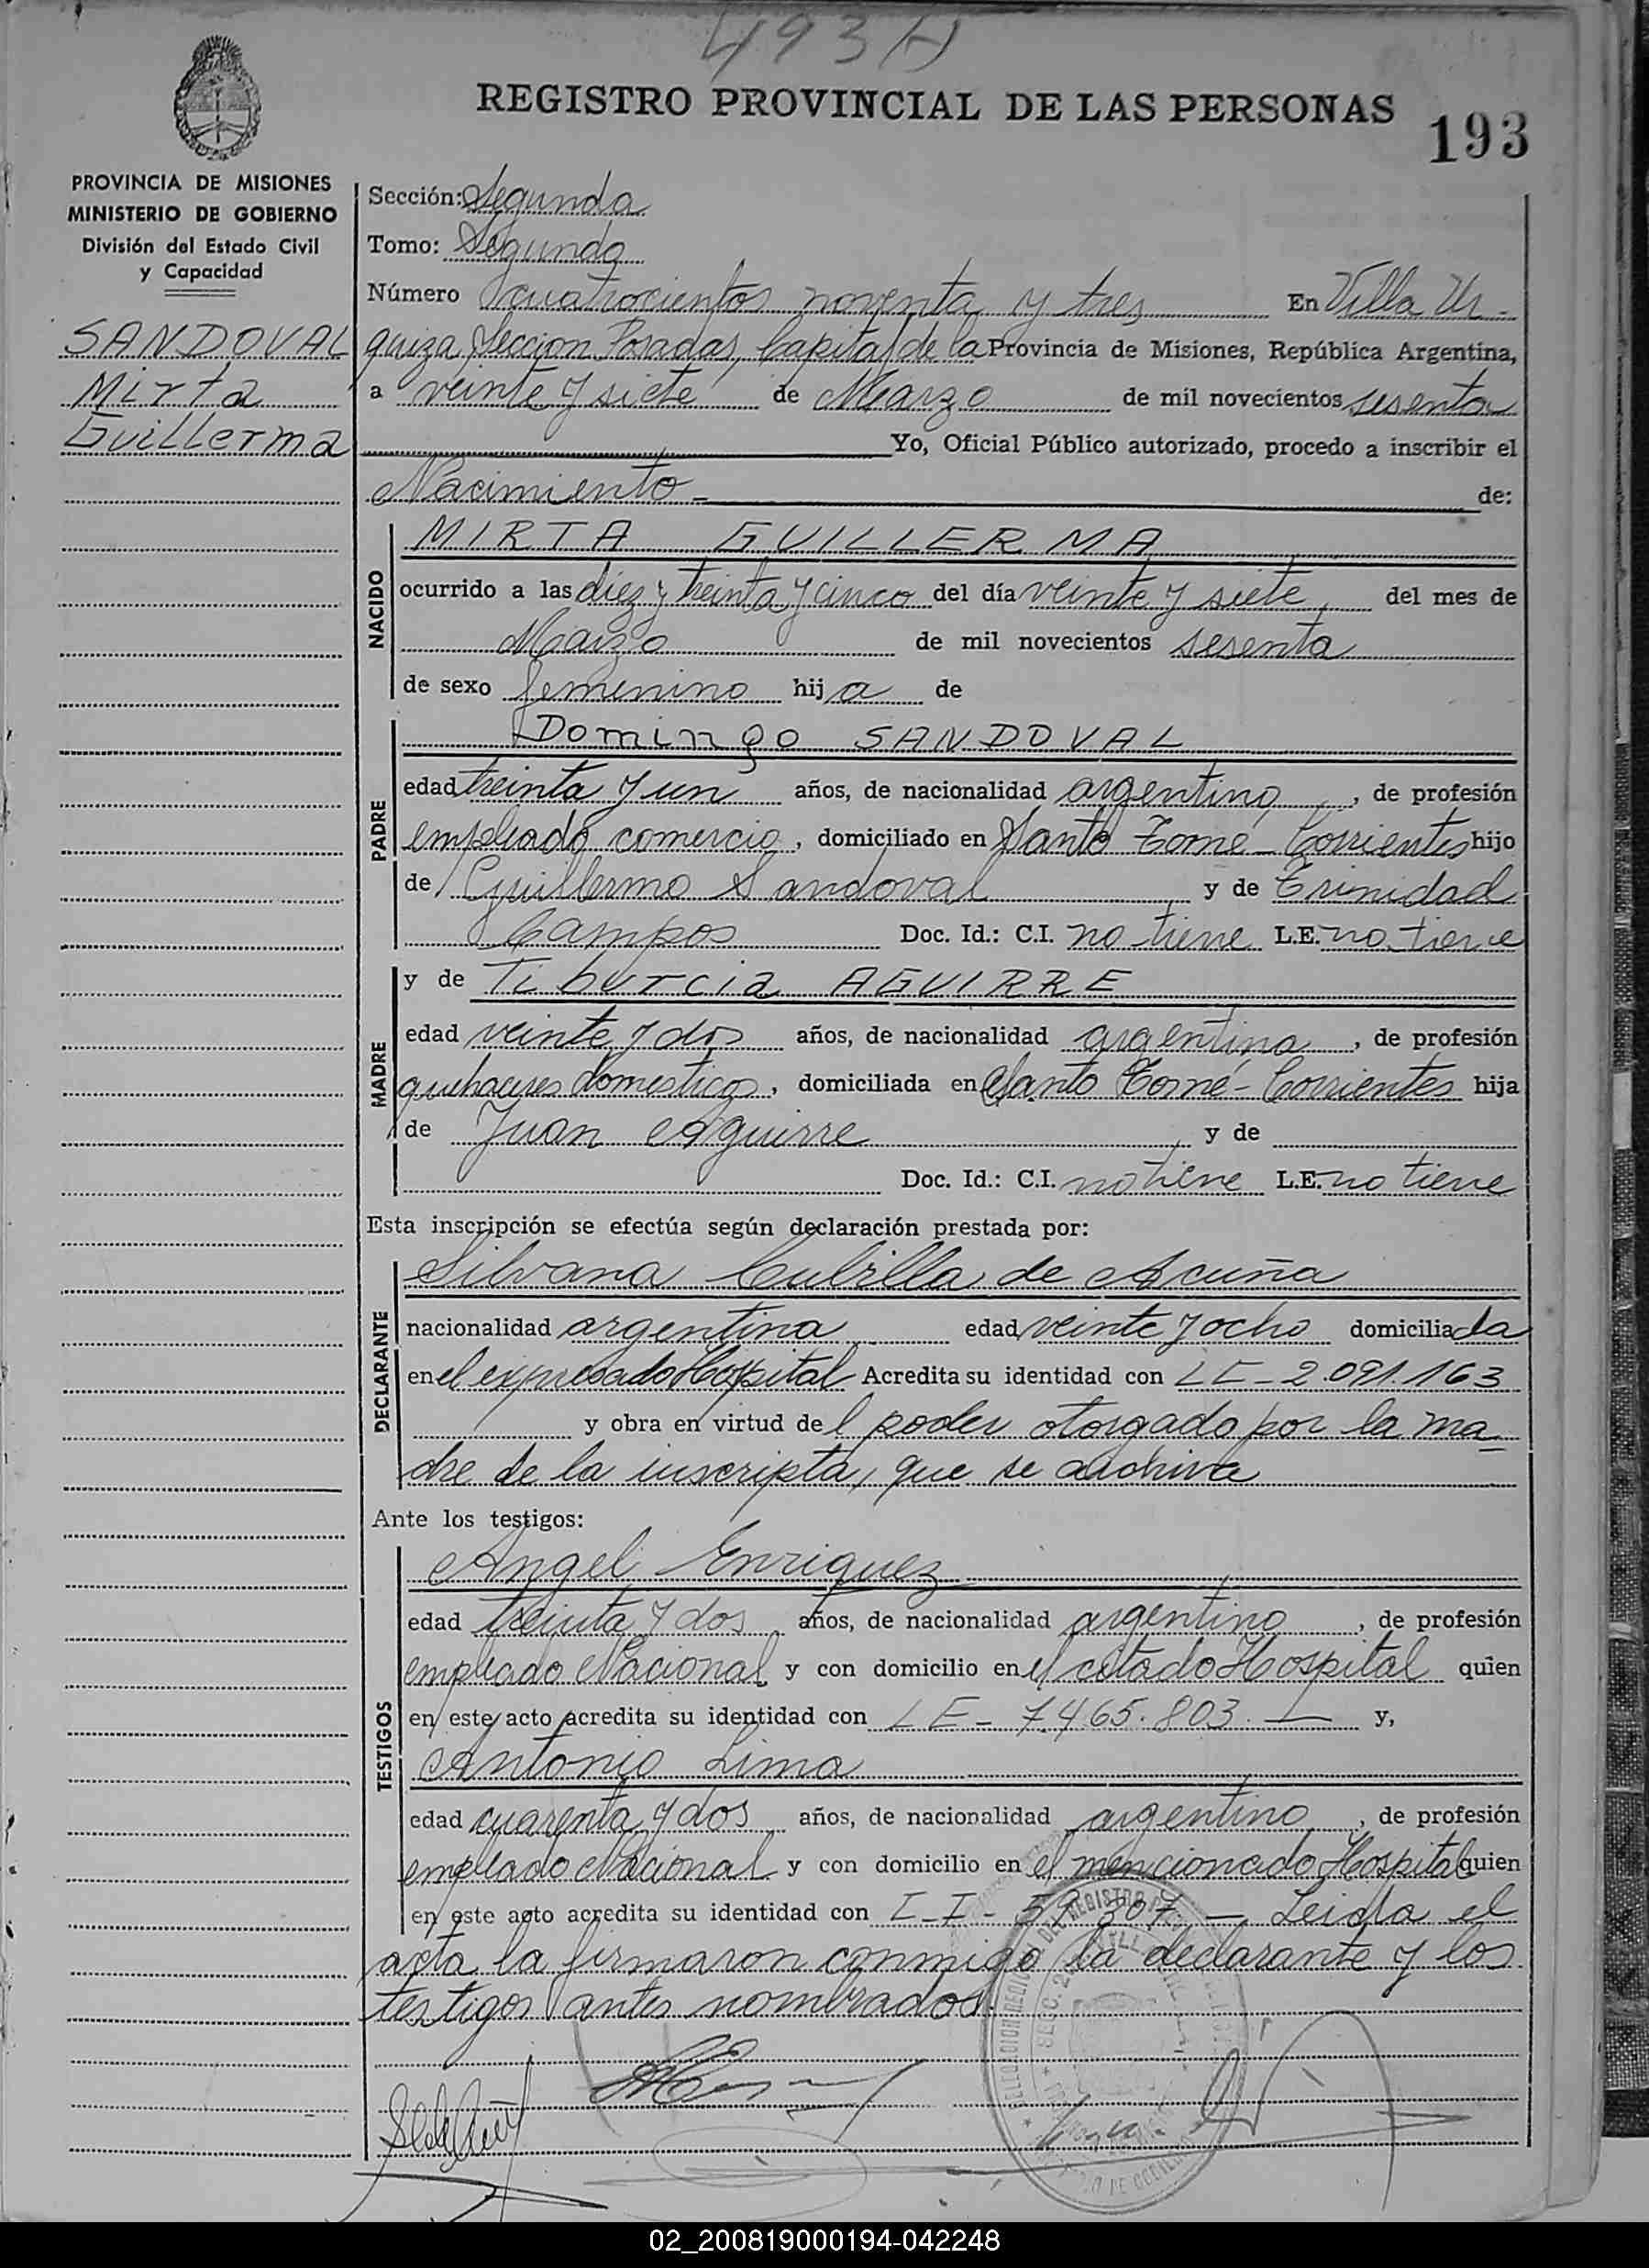 493 H
REGISTRO PROVINCIAL DE LAS PERSONAS
193
PROVINCIA DE MISIONES
MINISTERIO DE GOBIERNO
División del Estado Civil
y Capacidad
SANDOVAL
Mirta
Guillerma
Sección: Segunda
Tomo: Segundo
Número cuatrocientos noventa y tres En Villa Ur-
quiza, Seccion Posadas, Capital de la Provincia de Misiones, República Argentina,
a veinte y siete de Marzo de mil novecientos sesenta
Yo, Oficial Público autorizado, procedo a inscribir el
Nacimiento de:
NACIDO
MIRTA GUILLERMA
ocurrido a las diez y treinta y cinco del día veinte y siete, del mes de
Marzo de mil novecientos sesenta
de sexo femenino hija de
PADRE
Domingo SANDOVAL
edad treinta y un años, de nacionalidad argentino, de profesión
empleado comercio, domiciliado en Santo Tomé - Corrientes hijo
de Guillermo Sandoval y de Trinidad
Campos Doc. Id.: C.I. no tiene L.E. no tiene
MADRE
y de Tiburcia AGUIRRE
edad veinte y dos años, de nacionalidad argentina, de profesión
quehaceres domesticos, domiciliada en Santo Tomé - Corrientes hija
de Juan Aguirre y de
Doc. Id.: C.I. no tiene L.E. no tiene
Esta inscripción se efectúa según declaración prestada por:
DECLARANTE
Silvana Cubilla de Acuña
nacionalidad argentina edad veinte y ocho domiciliada
en el expresado Hospital Acredita su identidad con LC - 2.091.163
y obra en virtud del poder otorgado por la ma-
dre de la inscripta, que se archiva
Ante los testigos:
TESTIGOS
Angel Enriquez
edad treinta y dos años, de nacionalidad argentino, de profesión
empleado Nacional y con domicilio en el citado Hospital quien
en este acto acredita su identidad con LE - 7.465.803. — y,
Antonio Lima
edad cuarenta y dos años, de nacionalidad argentino, de profesión
empleado Nacional y con domicilio en el mencionado Hospital quien
en este acto acredita su identidad con I-I - 307 — Leida el
acta la firmaron conmigo la declarante y los
testigos antes nombrados.
02_200819000194-042248